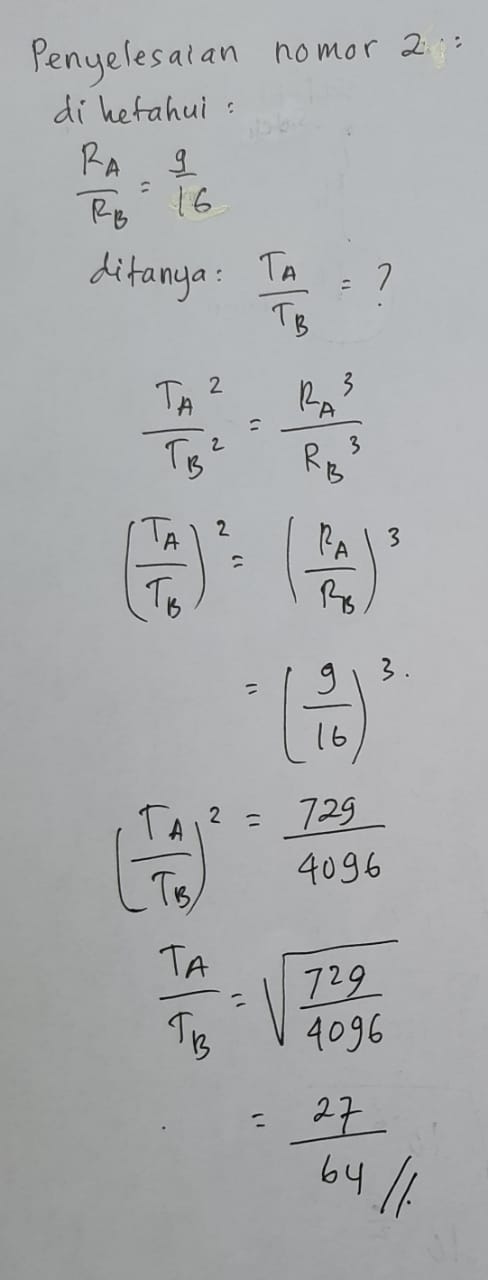 Penyelesaian nomor 2 :
diketahui :
R_A / R_B = 9 / 16
ditanya : T_A / T_B = ?
T_A² / T_B² = R_A³ / R_B³
(T_A / T_B)² = (R_A / R_B)³
= (9 / 16)³.
(T_A / T_B)² = 729 / 4096
T_A / T_B = √(729 / 4096)
= 27 / 64 //.